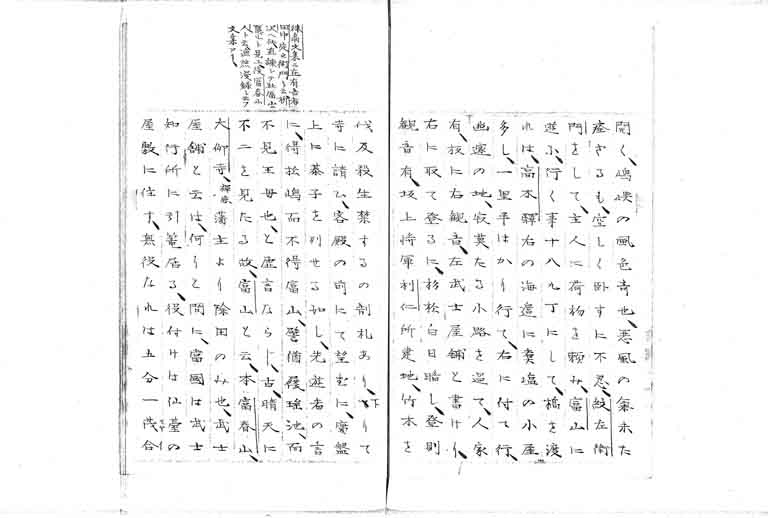 聞く、嶋峡の風色奇也、悪風の氣未た
盛さるも、空しく卧すに不忍、紋左衛
門をして、主人に荷物を頼み、富山に
遊ふ、行く事十八九丁にして、橋を渡
れは、高木驛右の海邉に煮塩の小屋
多し、一里半はかり行て、右に付て行、
幽邃の地、寂莫たる小路を巡て、人家
有、坂に右観音左武士屋舗と書けり、
右に取て登るに、杉松白日暗し、登則
観音有、坂上将軍利仁所建地、竹木を
文集ニ丘有吉者
田中庄左衛門と云
富春山
人ト云漫録ト云フ
文集アリ
伐及殺生禁するの制札あり、下りて
寺に請ひ、客殿の前にて望むに、廣盤
上に碁子を列せる如し、先遊者の言
に、得松嶋而不得富山、譬猶瑤池、而
不見王母也、と虚言ならし、古晴天に
不二を見たる故、富山と云、本富春山
大仰寺、禅宗藩主より除田のみ也、武士
屋舗と云は、何りと問に、當國は武士
知行所に引篭居る、役付けは仙臺の
屋敷に住す、無役なれは五分一歳合